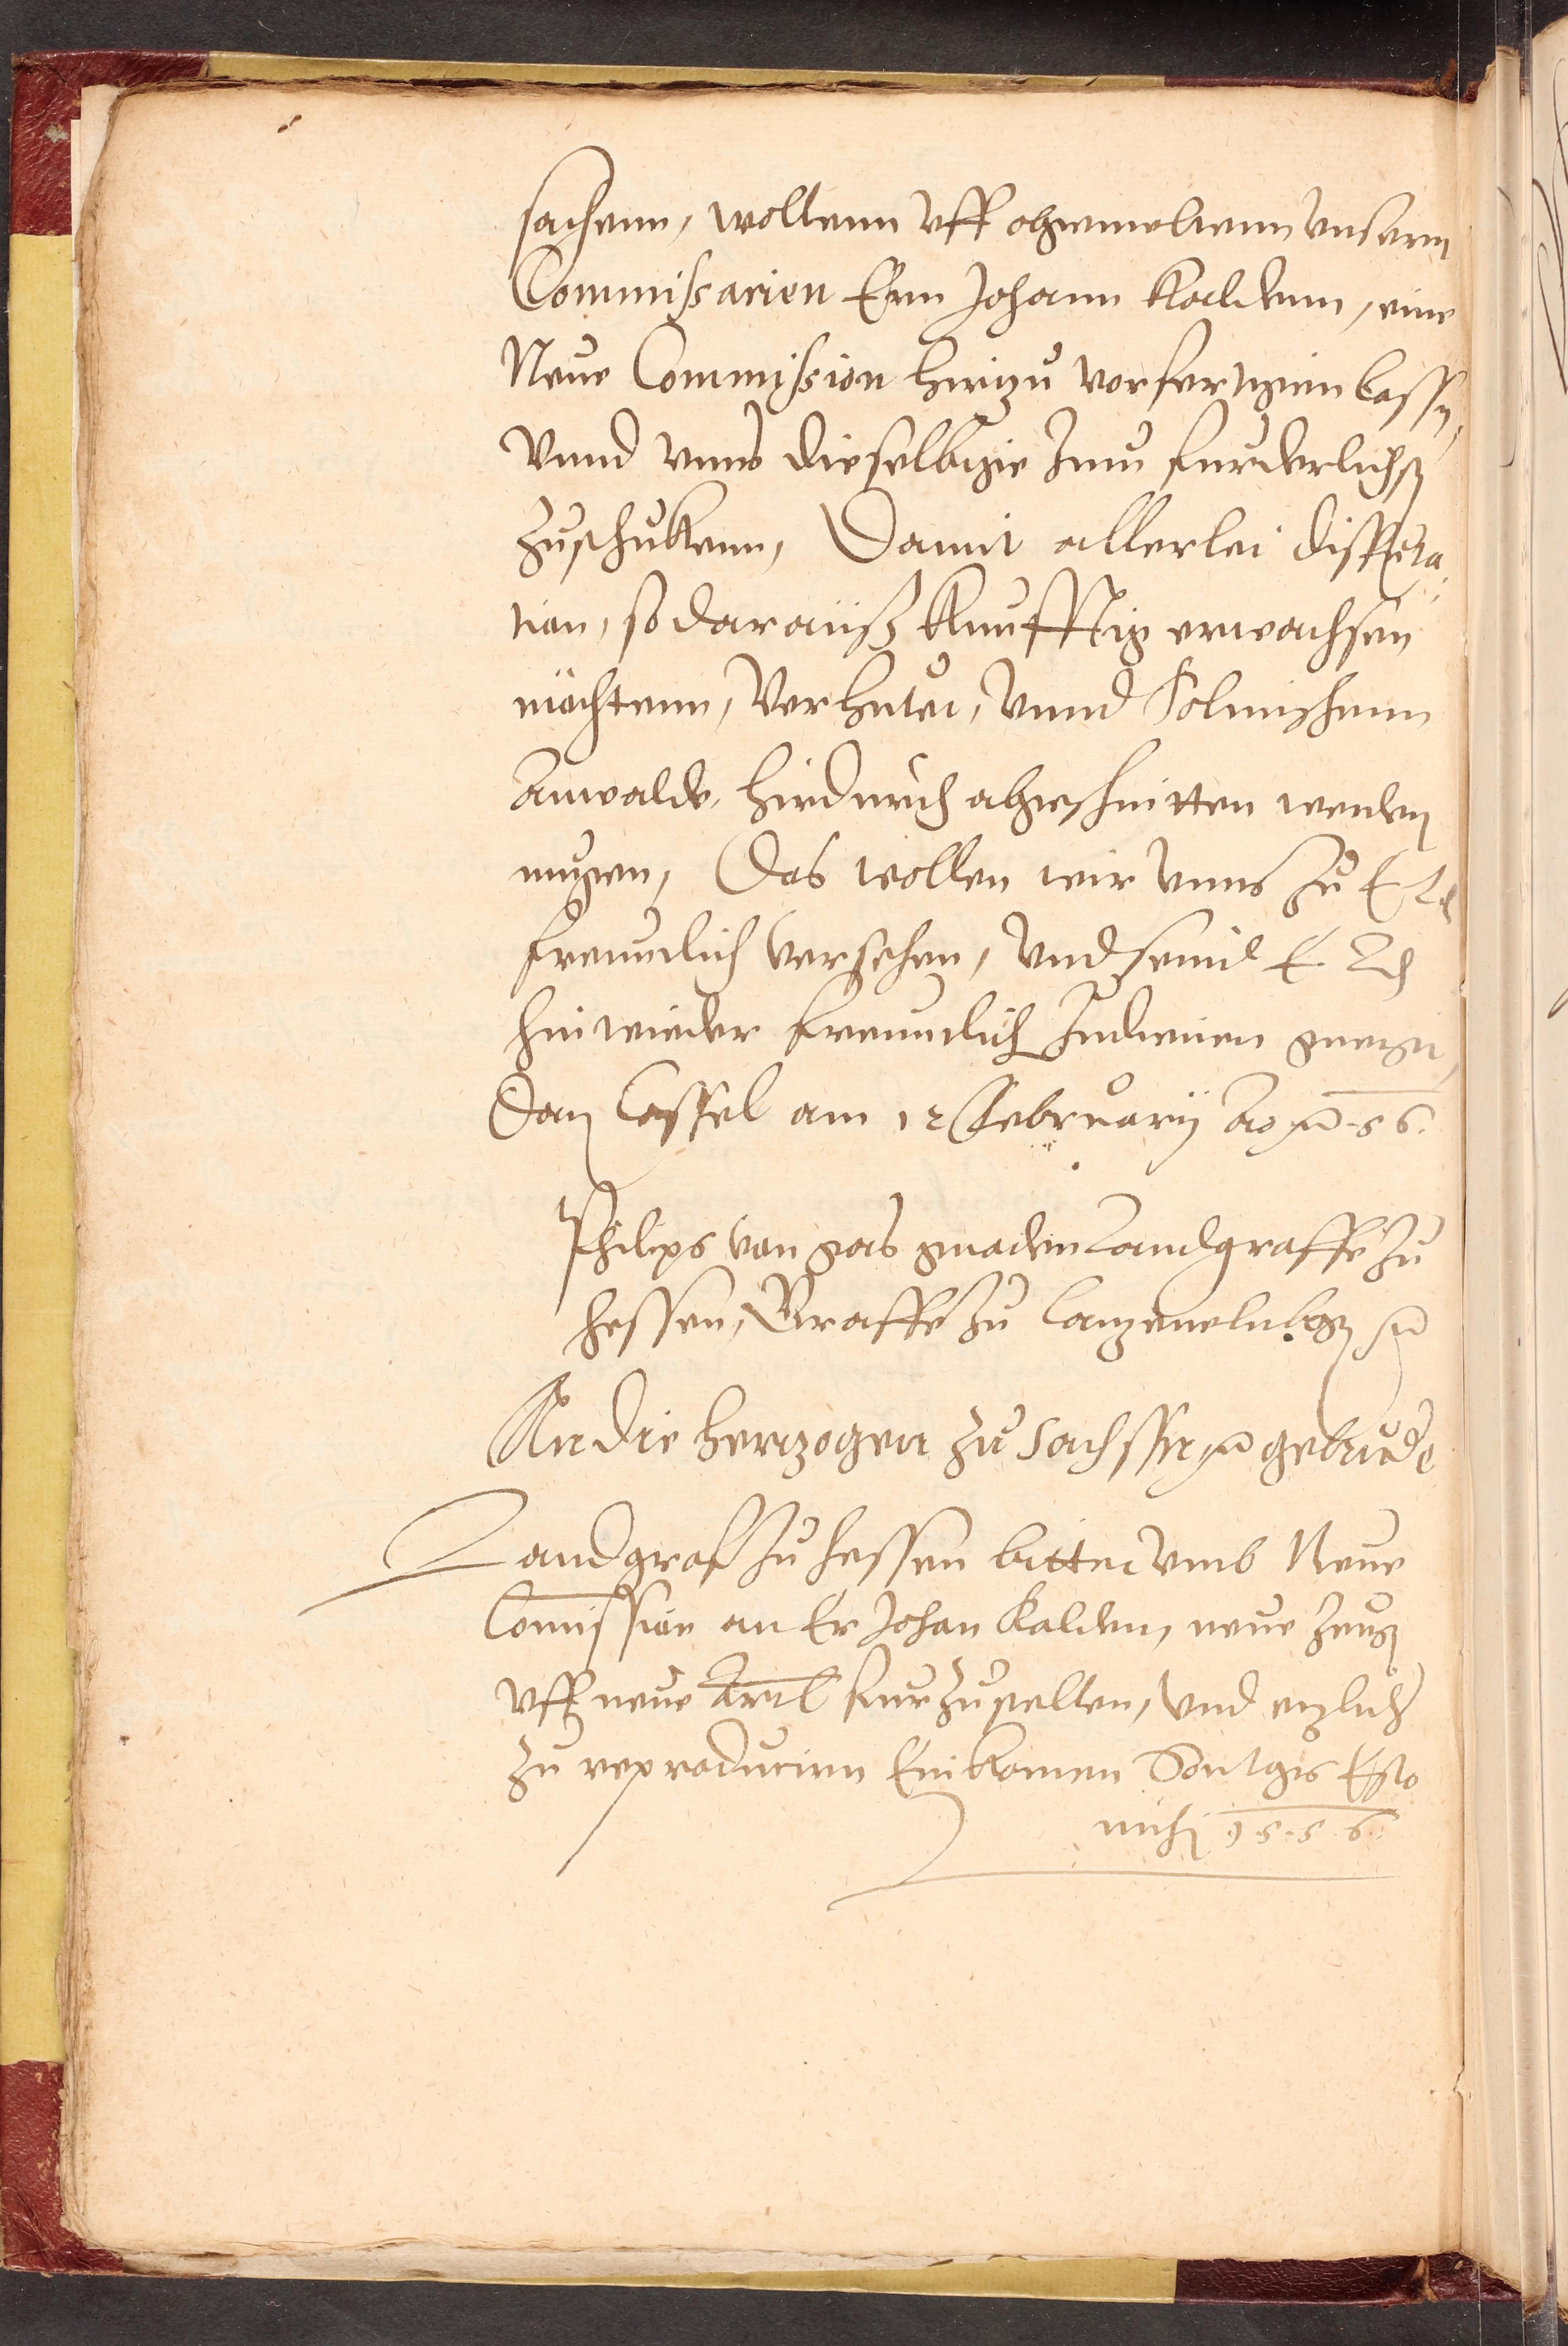 sachenn, wollenn vff obgemeltenn vnsernn
Commissarien Ern Johann Kaldenn, eine
Neue Commission hirzu vorfertigenn lassen,
Vnnd vnns dieselbige zum furderlichsten
zuschicken, Damit allerlei disputa-
tion, so darauß kunfftig erwachsen
mochtenn, Verhutet, Vnnd Solmischenn
Anwalde, hirdurch abgeschnitten werden
mugen, Das wollen wir vnns zu E L
freuntlich versehen, Vnd seint E. L
hinwieder freuntlich zudienen geneigt,
Dat Cassel am 12 Februarij Ao 56.
Philips von gots gnaden Landgraffe zu
Hessen, Graffe zu Catzenelnbogen
An die hertzogen zu Sachssen gebrude
Landgraf zu Hessen bittet vmb Neue
Comission an Er Johan Kalden, neue Zeugen
vff neue Artl furzustellen, vnd etzliche
zu reproduciren Einkomen Sontags Esto
michi 1556.